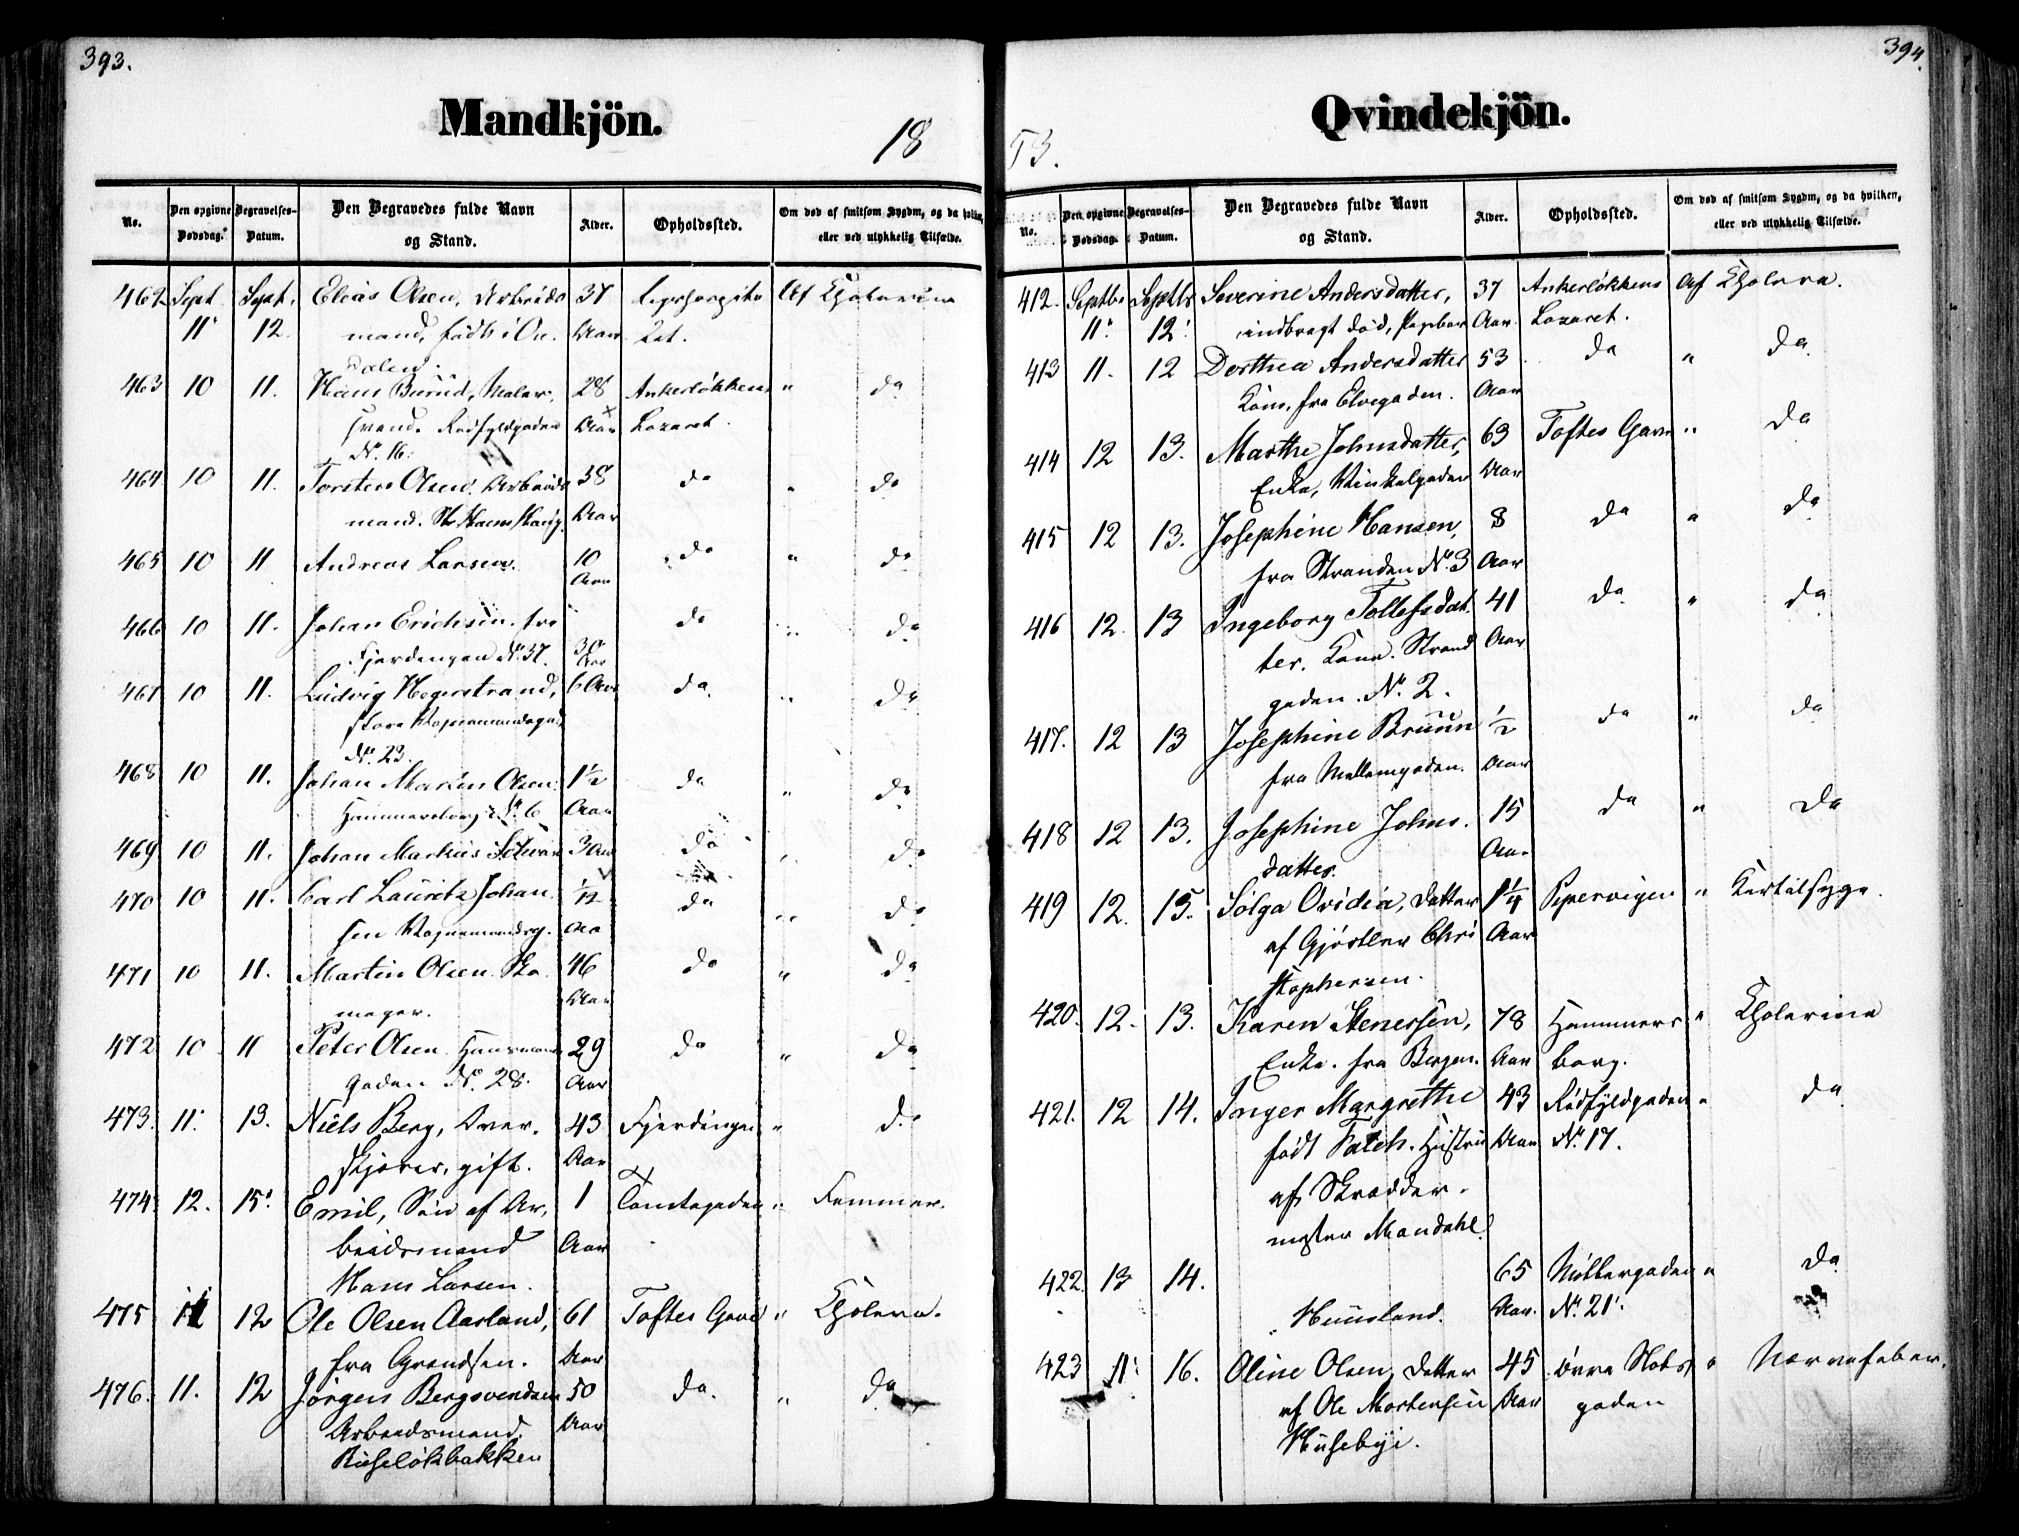 393.
Mandkjön.
18
No.
Den opgivne Dødsdag.
Begravelses-Datum.
Den Begravedes fulde Navn og Stand.
Alder.
Opholdssted.
Om død af smitsom Sygdm, og da hvilken, eller ved ulykkelig Tilfælde.
462 Sept. Sept. Elias Olsen, Arbeids 37 Af Cholerine
11 12. mand, født i Aar
463 10 11. Hans Buriud, Maler 28 Ankerløkkens " do
svend. Rødfyldgaden Aar Lazaret.
No. 16.
464 10 11. Torsten Olsen, Arbeids 38 do " do
mand. Aar
465 10 11 Andreas Larsen. 10 do " do
Aar
466 10 11. Johan Erichsen. fra do " do
Fjerdingen No. 37. 30 Aar
467 10 11. Ludvig Hegerstrand, 6 Aar do. " do
store Vognmandsgad
No. 23.
468 10 11. Johan Marius Olsen. 1½ do " do
Hammersborg No. 6 Aar
469 10 11. Johan Markus 3 Aar do " do
470 10 11. Carl Lauritz Johan do " do
sen Vognmandsg. Aar
471 10 11. Martin Olsen. Sko 46 do " do
mager. Aar
472 10 11 Peter Olsen. Hausmans 29 do " do
gaden No. 28. Aar
473. 11. 13. Niels Berg, 43 Fjerdingen " do
skjærer, gift. Aar
474 12. 15. Emil, Søn af Ar, 1 Tomtegaden " Kramper.
beidsmand Aar
Hans Larsen.
475 11 12 Ole Olsen Aasland, 61 Toftes Gave " Cholera.
fra Grandsen. Aar
476. 11. 12 Jørgen Bergsvendsen 50 do. " do
Arbeidsmand. Aar
Ruseløkbakken
394.
Qvindekjön.
53.
No.
Den opgivne Dødsdag.
Begravelses-Datum.
Den Begravedes fulde Navn og Stand.
Alder.
Opholdssted.
Om død af smitsom Sygdm, og da hvilken, eller ved ulykkelig Tilfælde.
412. Septbr Septbr Severine Andersdatter, 37 Ankerløkkens Af Cholera.
11. 12. indbragt død, Aar Lazaret.
413 11. 12 Dorthea Andersdatter 53 do " do.
Kone, fra Elvegaden. Aar
414 12 13. Marthe Johnsdatter, 63 Toftes Gave " do
Enke, Vinkelgaden Aar
415 12 13. Josephine Hansen, 8 do " do
fra Stranden No. 3 Aar
416 12. 13 Ingeborg Tollefsdat 41 do " do
ter. Kone. Strand Aar
gaden. No. 2.
417. 12 13 Josephine Bruun ½ do " do
fra Mellemgaden. Aar
418 12 13. Josephine Johns. 15 do " do
datter. Aar
419 12. 15. Solga Ovidia, Datter 1¼ Pipervigen "
af Gjørtler Chri Aar
stophersen.
420. 12. 13. Karen Stenersen, 78 Hammers " Cholerine
Enke. fra Bergen. Aar borg.
421. 12 14. Inger Margrethe 43 Rødfyldgaden " do
født Falch. Hustru Aar No. 17.
af Skrædder.
mester Mandahl
422. 13 14. 65 Møllergaden " do
Huusland. Aar. No. 21.
423 11. 16. Oline Olsen, Datter 45 øvre Slots " Nervefeber.
af Ole Mortensen Aar gaden
Husebye.